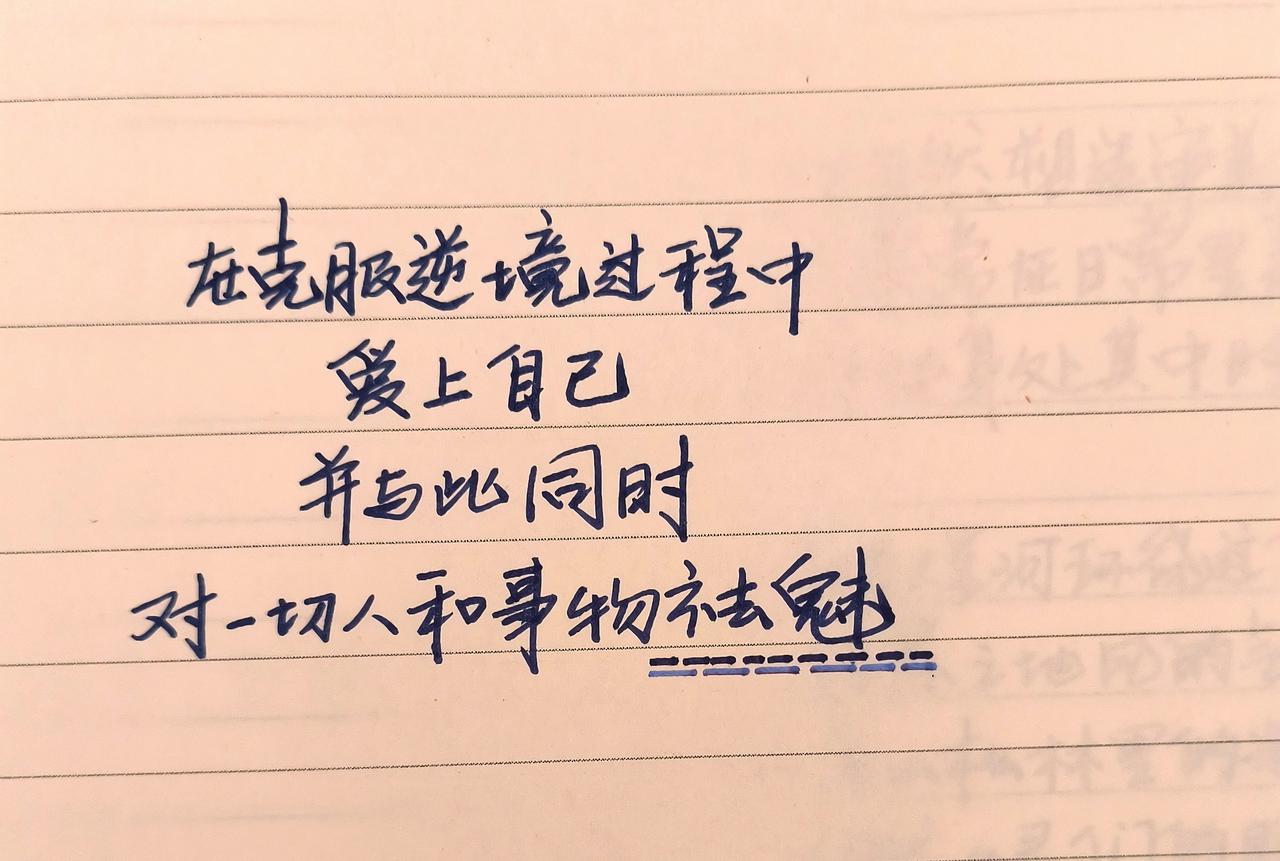 在克服逆境过程中
爱上自己
并与此同时
对一切人和事物祛魅